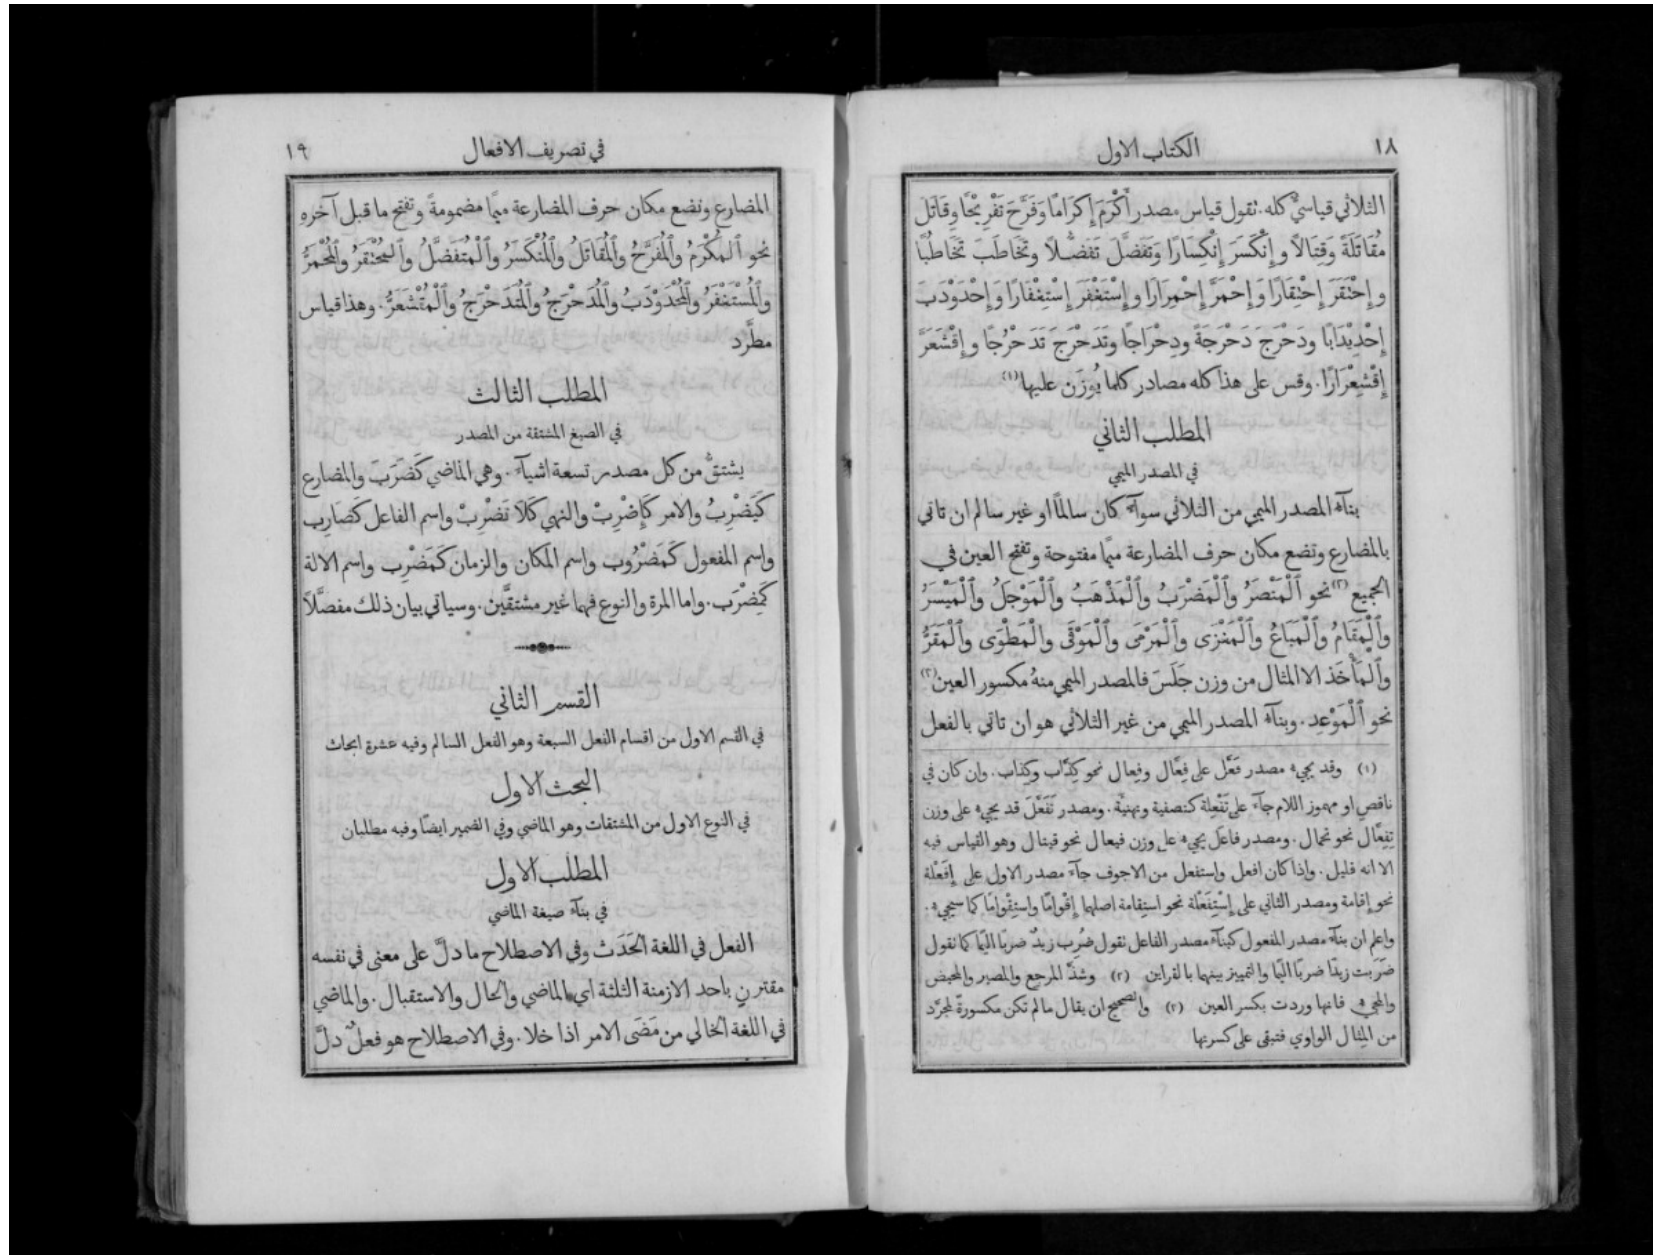 ١٨
الكتاب الاول
الثلاثي قياسيٌّ كله. نقول قياس مصدر أَكْرَمَ إِكرَامًا وَفَرَّحَ تَفْرِيحًا وقَاتَلَ
مُقَاتَلَةً وَقِتَالًا وإِنْكَسَرَ إِنْكِسَارًا وَتَفَضَّلَ تَفَضُّلًا وتَخَاطَبَ تَخَاطُبًا
وإِحْنَقَرَ إِحْنِقَارًا وَإِحْمَرَّ إِحْمِرَارًا وإِسْتَغْفَرَ إِسْتِغْفَارًا وَإِحْدَوْدَبَ
إِحْدِيْدَابًا ودَحْرَجَ دَحْرَجَةً ودِحْرَاجًا وتَدَحْرَجَ تَدَحْرُجًا وإِقْشَعَرَّ
إِقْشِعْرَارًا. وقس على هذا كله مصادر كلما يُوزَن عليها (١)
المطلب الثاني
في المصدر الميمي
بنآءُ المصدر الميمي من الثلاثي سوآءٌ كان سالمًا او غير سالم ان تاتي
بالمضارع وتضع مكان حرف المضارعة ميمًا مفتوحة وتفتح العين في
الجميع (٢) نحو ٱلْمَنْصَرُ وٱلْمَضْرَبُ وٱلْمَذْهَبُ وٱلْمَوْجَلُ وٱلْمَيْسَرُ
وٱلْمَقَامُ وٱلْمَبَاعُ وٱلْمَغْزَى وٱلْمَرْمَى وٱلْمَوْقَى والْمَطْوَى وٱلْمَقَرُّ
وٱلمَأْخَذ الا المثال من وزن جَلَسَ فالمصدر الميمي منهُ مكسور العين (٣)
نحو ٱلْمَوْعِد. وبنآءُ المصدر الميمي من غير الثلاثي هو ان تاتي بالفعل
(١) وقد يجيء مصدر فَعَّل على فِعَّال وفِعال نحو كِذَّاب وكِذاب. وان كان في
ناقص او مهموز اللام جآءَ على تَفْعِلة كتصفية وتهنِئَة. ومصدر تَفَعَّلَ قد يجيء على وزن
تِفِعَّال نحو تحمال. ومصدر فاعَل يجيء على وزن فيعال نحو قيتال وهو القياس فيه
الا انه قليل. واذا كان افعل واستفعل من الاجوف جآءَ مصدر الاول على إِفَعْلة
نحو إقامة ومصدر الثاني على إِسْتِفَعْلة نحو استقامة اصلهما إِقْوامًا واستِقْوامًا كما سيجيء.
واعلم ان بنآءَ مصدر المفعول كبنآءِ مصدر الفاعل نقول ضُرِب زيدٌ ضربًا اليمًا كما نقول
ضَرَبت زيدًا ضربًا اليمًا والتمييز بينهما بالقراين (٢) وشذَّ المرجع والمصير والمحيض
والمجيء فانها وردت بكسر العين (٣) والصحيح ان يقال ما لم تكن مكسورةً لمجرَّد
من المثال الواوي فتبقى على كسرتها
١٩
في تصريف الافعال
المضارع وتضع مكان حرف المضارعة ميمًا مضمومةً وتفتح ما قبل آخرهِ
نحو ٱلمُكْرَمُ وٱلْمُفَرَّحُ وٱلْمُقَاتَلُ وٱلْمُنْكَسَرُ وٱلْمُتَفَضَّلُ وٱلمُحْنَقَرُ وٱلْمُحْمَرُّ
وٱلْمُسْتَغْفَرُ وٱلْمُحْدَوْدَبُ وٱلْمُدَحْرَجُ وٱلْمُتَدَحْرَجُ وٱلْمُقْشَعَرُّ. وهذا قياس
مطَّرد
المطلب الثالث
في الصيغ المشتقة من المصدر
يشتقُّ من كل مصدر تسعة اشيآءَ. وهي الماضي كَضَرَبَ والمضارع
كَيَضْرِبُ والامر كَإِضْرِبْ والنهي كَلاَ تَضْرِبْ واسم الفاعل كَضَارِب
واسم المفعول كَمَضْرُوب واسم المكان والزمان كَمَضْرِب واسم الالة
كَمِضْرَب. واما المرة والنوع فهما غير مشتقَّين. وسياتي بيان ذلك مفصَّلًا
القسم الثاني
في القسم الاول من اقسام الفعل السبعة وهو الفعل السالم وفيه عشرة ابحاث
البحث الاول
في النوع الاول من المشتقات وهو الماضي وفي الضمير ايضًا وفيه مطلبان
المطلب الاول
في بنآءِ صيغة الماضي
الفعل في اللغة الحَدَث وفي الاصطلاح ما دلَّ على معنى في نفسه
مقترنٍ باحد الازمنة الثلثة اي الماضي والحال والاستقبال. والماضي
في اللغة الخالي من مَضَى الامر اذا خلا. وفي الاصطلاح هو فعلٌ دلَّ